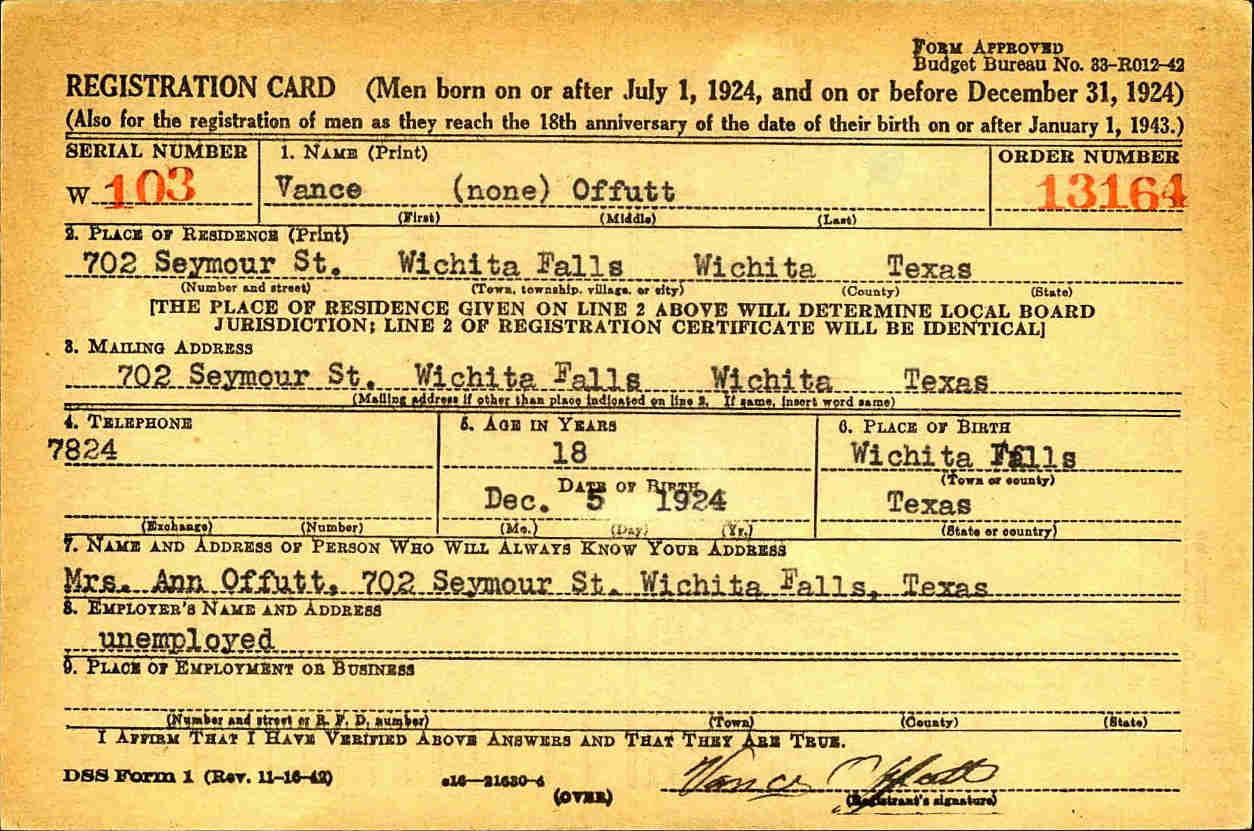 FORM APPROVED
Budget Bureau No. 33-R012-42
REGISTRATION CARD (Men born on or after July 1, 1924, and on or before December 31, 1924)
(Also for the registration of men as they reach the 18th anniversary of the date of their birth on or after January 1, 1943.)
SERIAL NUMBER 1. NAME (Print) ORDER NUMBER
W 103 Vance (none) Offutt 13164
(First) (Middle) (Last)
2. PLACE OF RESIDENCE (Print)
702 Seymour St. Wichita Falls Wichita Texas
(Number and street) (Town, township, village, or city) (County) (State)
[THE PLACE OF RESIDENCE GIVEN ON LINE 2 ABOVE WILL DETERMINE LOCAL BOARD
JURISDICTION; LINE 2 OF REGISTRATION CERTIFICATE WILL BE IDENTICAL]
3. MAILING ADDRESS
702 Seymour St. Wichita Falls Wichita Texas
(Mailing address if other than place indicated on line 2. If same, insert word same)
4. TELEPHONE 5. AGE IN YEARS 6. PLACE OF BIRTH
7824 18 Wichita Falls
DATE OF BIRTH (Town or county)
Dec. 5 1924 Texas
(Exchange) (Number) (Mo.) (Day) (Yr.) (State or country)
7. NAME AND ADDRESS OF PERSON WHO WILL ALWAYS KNOW YOUR ADDRESS
Mrs. Ann Offutt, 702 Seymour St. Wichita Falls, Texas
8. EMPLOYER'S NAME AND ADDRESS
unemployed
9. PLACE OF EMPLOYMENT OR BUSINESS
(Number and street or R. F. D. number) (Town) (County) (State)
I AFFIRM THAT I HAVE VERIFIED ABOVE ANSWERS AND THAT THEY ARE TRUE.
DSS Form 1 (Rev. 11-16-42) e16-21630-4 Vance Offutt
(OVER) (Registrant's signature)